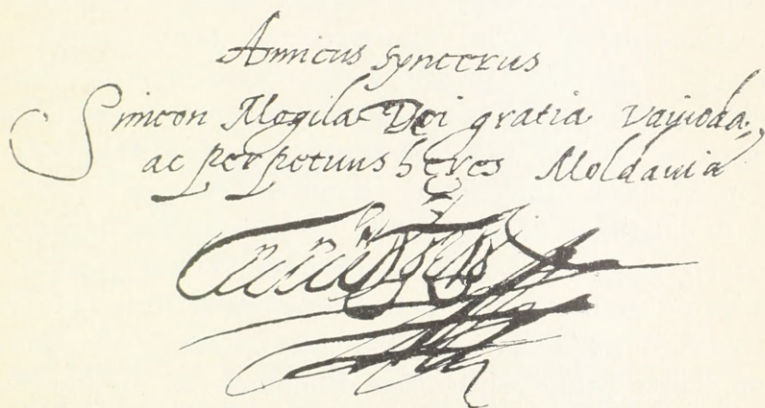 Amicus syncerus
Simeon Mogila Dei gratia Vayuoda
ac perpetuus heres Moldauia